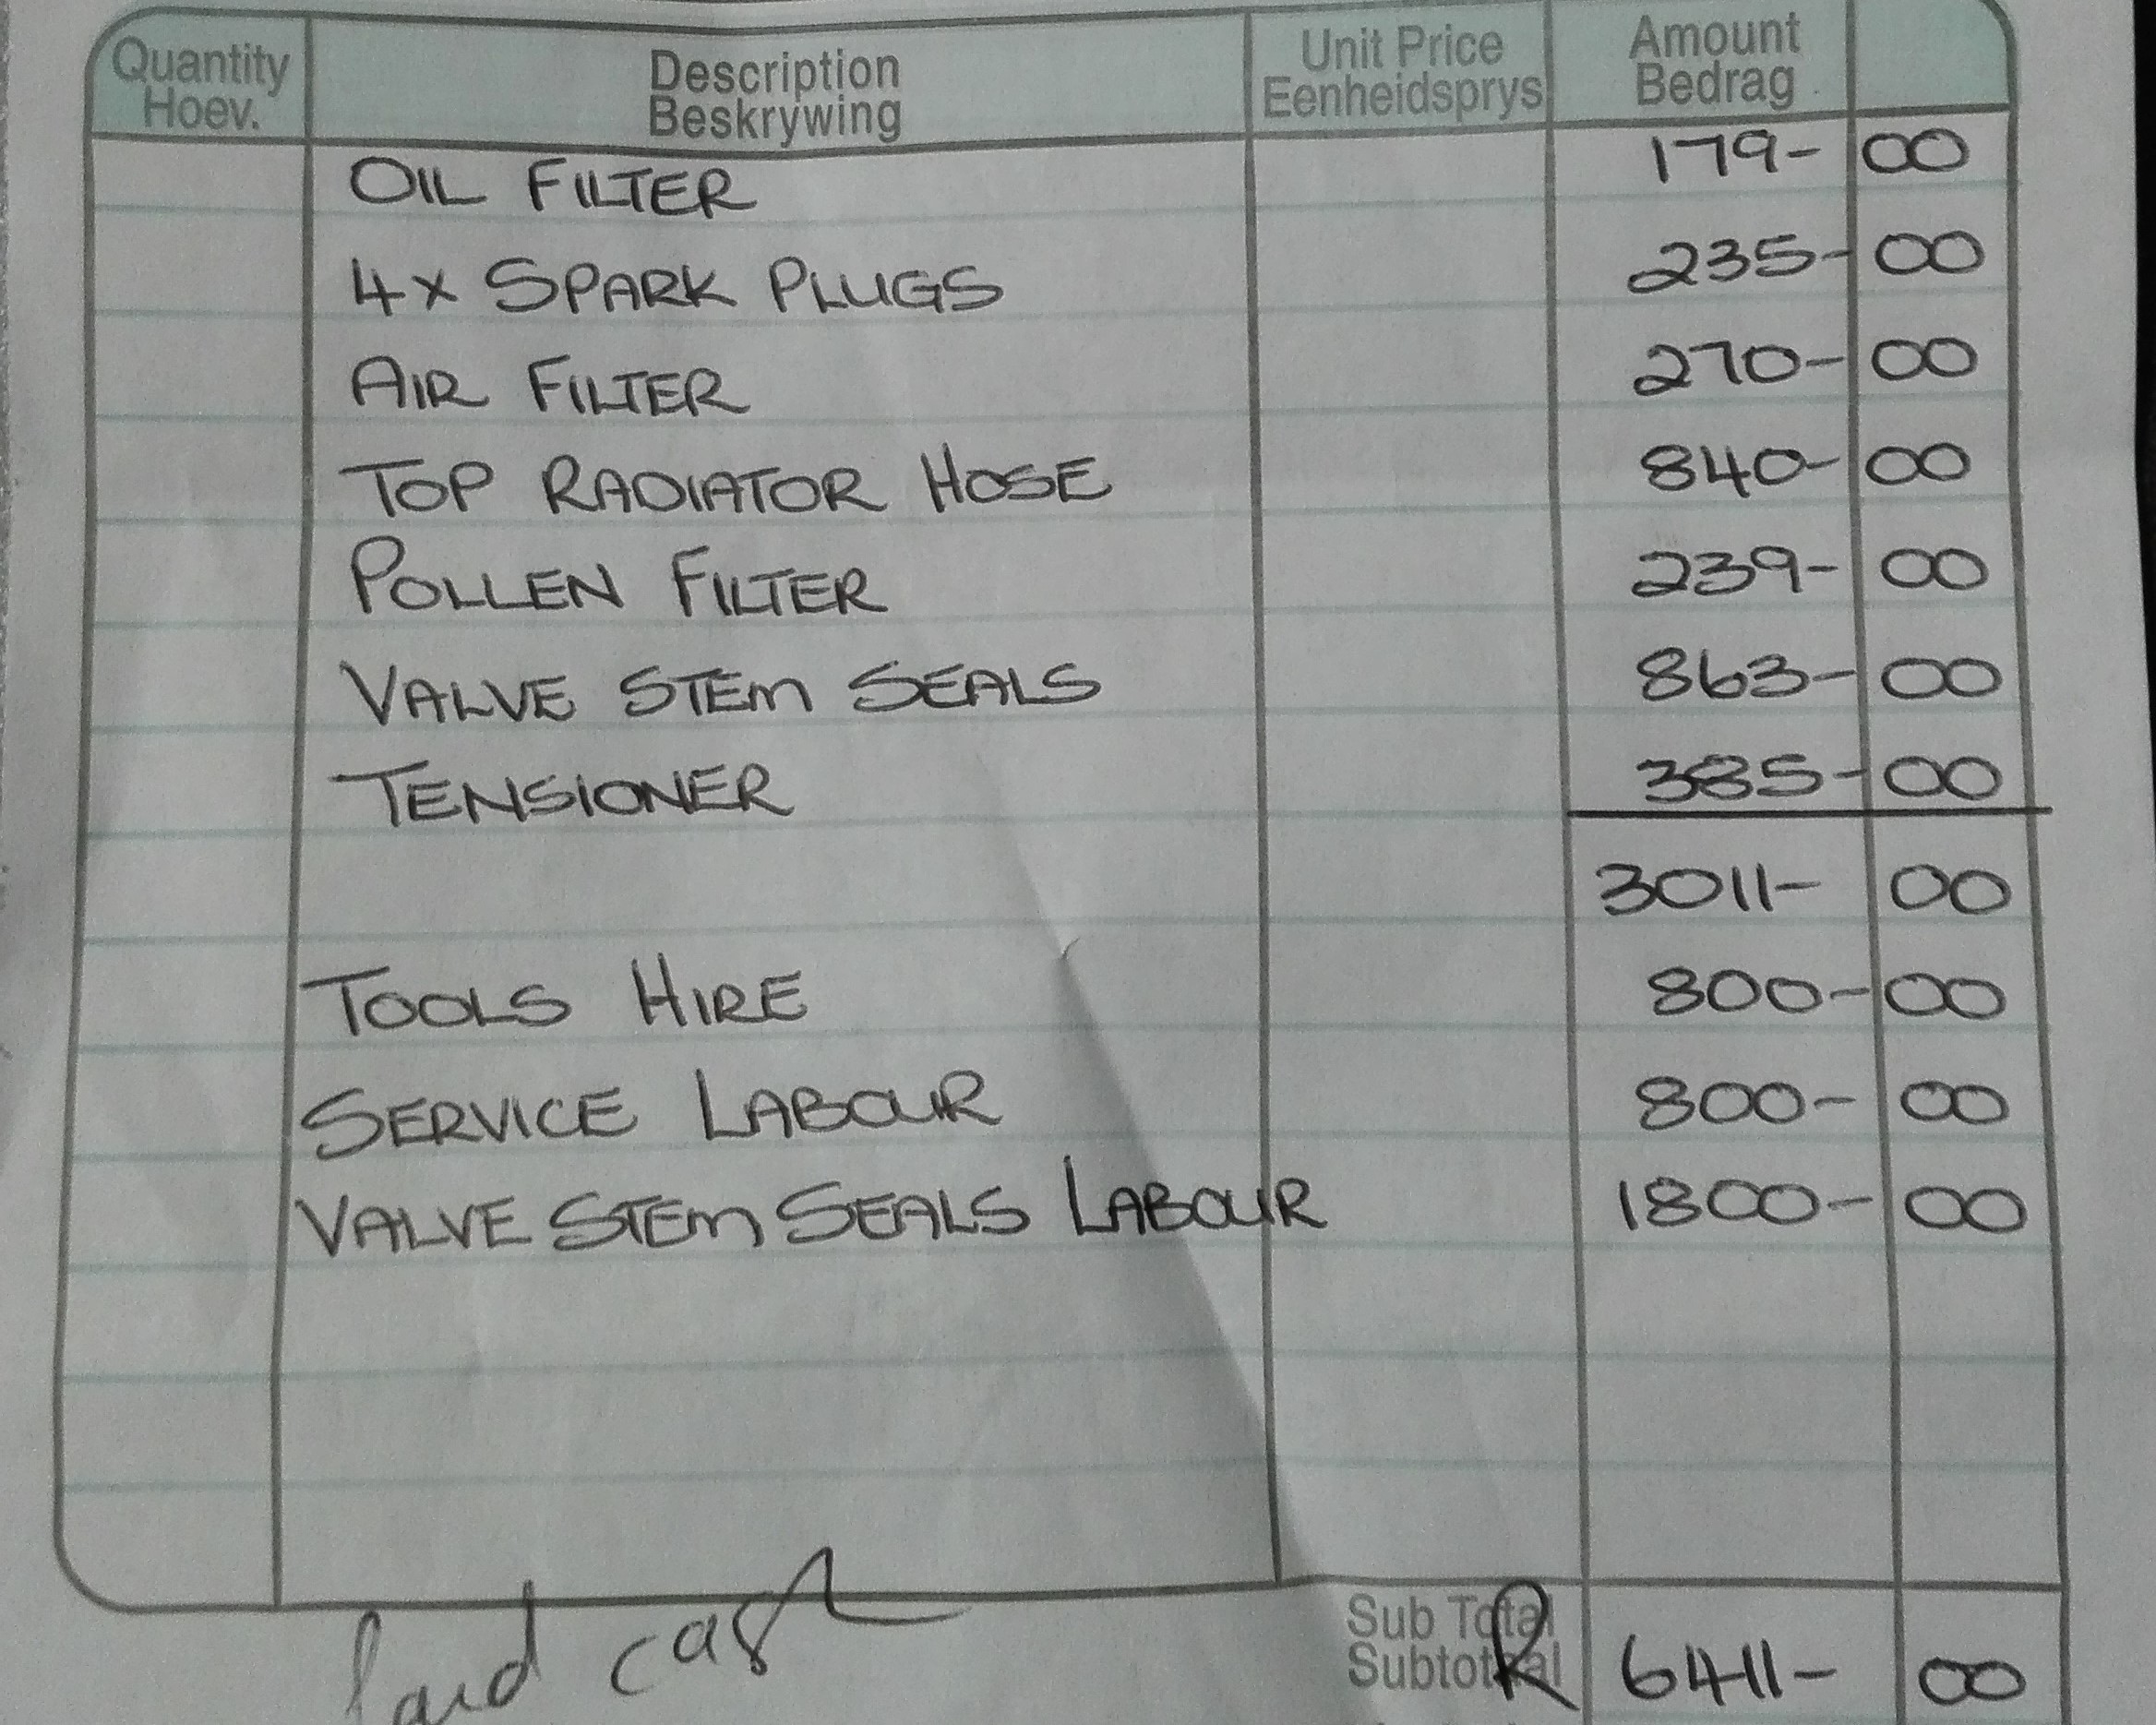 Quantity Description Unit Price Amount
Hoev. Beskrywing Eenheidsprys Bedrag
OIL FILTER 179-00
4x SPARK PLUGS 235-00
AIR FILTER 270-00
TOP RADIATOR HOSE 840-00
POLLEN FILTER 239-00
VALVE STEM SEALS 863-00
TENSIONER 385-00
3011-00
TOOLS HIRE 800-00
SERVICE LABOUR 800-00
VALVE STEM SEALS LABOUR 1800-00
Sub Total
Subtotaal R 6411-00
Paid cash